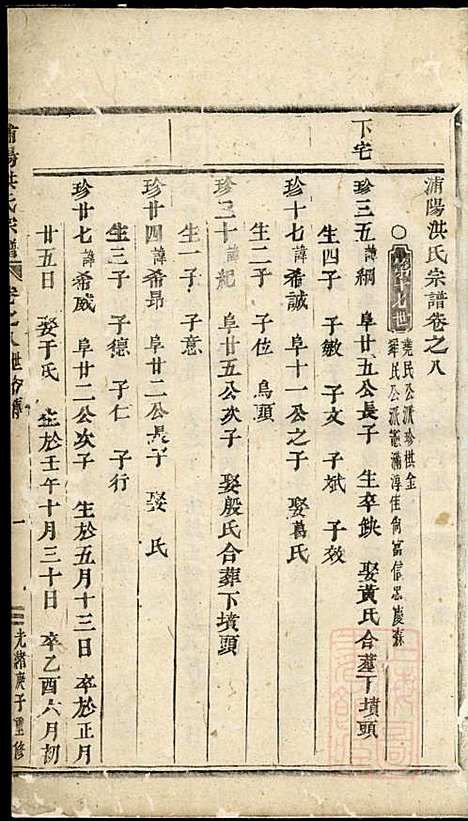 浦陽洪氏宗譜卷之八
第十七世
堯氏公派珍棋金
舜氏公派寵滿淳佳尙富信忠慶蘇
下宅
珍三五諱綱 阜廿五公長子 生卒缺 娶黃氏合塟下墳頭
生四子 子敏 子文 子斌 子效
珍十七諱希誠 阜十一公之子 娶葛氏
生二子 子位 鳥頭
珍三十諱紀 阜廿五公次子 娶殷氏合葬下墳頭
生一子 子意
珍廿四諱希昂 阜廿二公長子 娶 氏
生三子 子德 子仁 子行
珍廿七諱希威 阜廿二公次子 生於五月十三日 卒於正月
廿五日 娶于氏 生於壬午十月三十日 卒乙酉六月初
浦陽洪氏宗譜 卷之八 世 傳 一 光緒庚子重修